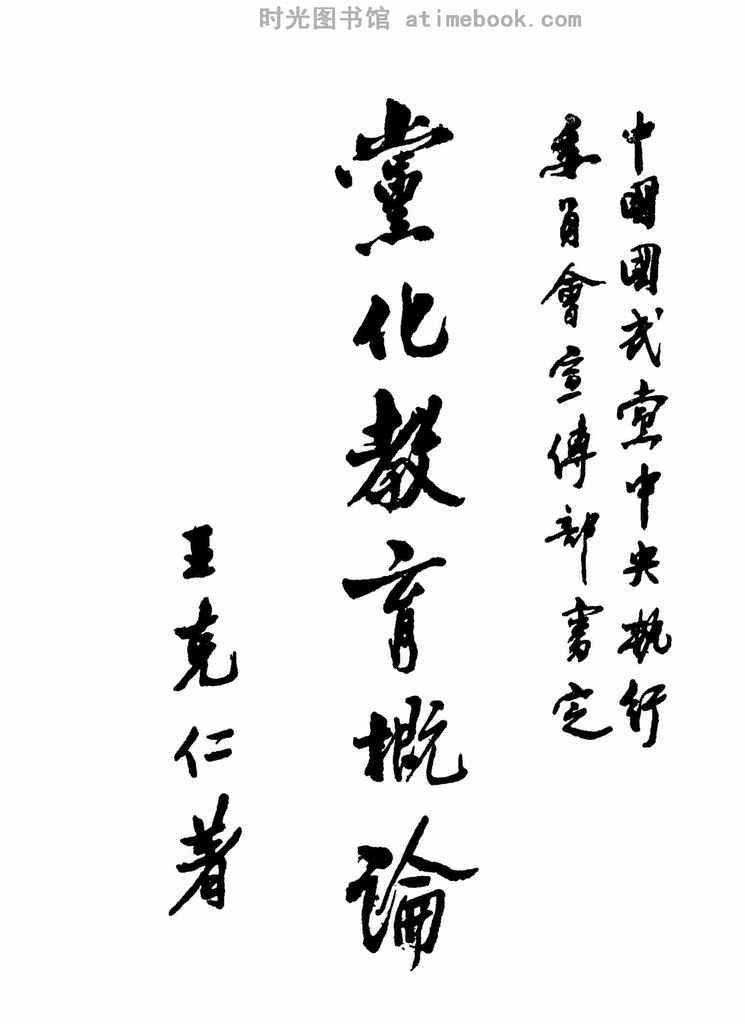 时光图书馆 atimebook.com
中國國民黨中央執行
委員會宣傳部審定
黨化教育概論
王克仁著